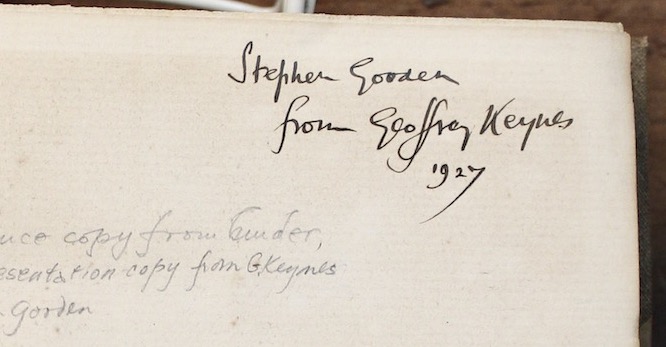 Stephen Gooden
from Geoffrey Keynes
1927
copy from binder,
esentation copy from G. Keynes
Gooden